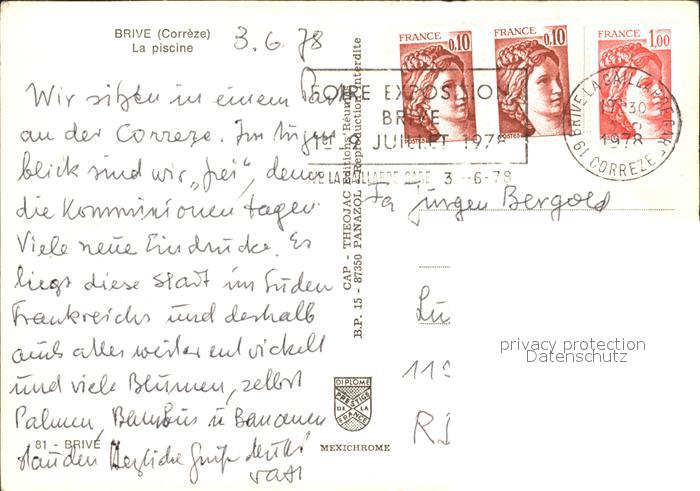 BRIVE (Corrèze)
La piscine
3.6.78
Wir sitzen in einem
an der Correze. Im Augen
blick sind wir „frei", denn
die Kommissionen tagen.
Viele neue Eindrücke. Es
liegt diese Stadt im Süden
Frankreichs und deshalb
auch alles weiter entwickelt
und viele Blumen, selbst
Palmen, Bambus u Bananen
81 - BRIVE
stauden Herzliche Grüße
CAP - THEOJAC Editions Réunies
B.P. 15 - 87350 PANAZOL Reproduction interdite
DIPLOME
PRESTIGE
DE LA
FRANCE
MEXICHROME
FRANCE 0,10
POSTES
FRANCE 0,10
POSTES
FRANCE 1,00
FOIRE EXPOSITION
BRIVE
1er-8 JUILLET 1978
BRIVE LA GAILLARDE GARE 3 -6-78
BRIVE-LA-GAILLARDE GARE
19 CORREZE
1978
Fa Jürgen Bergold
privacy protection
Datenschutz